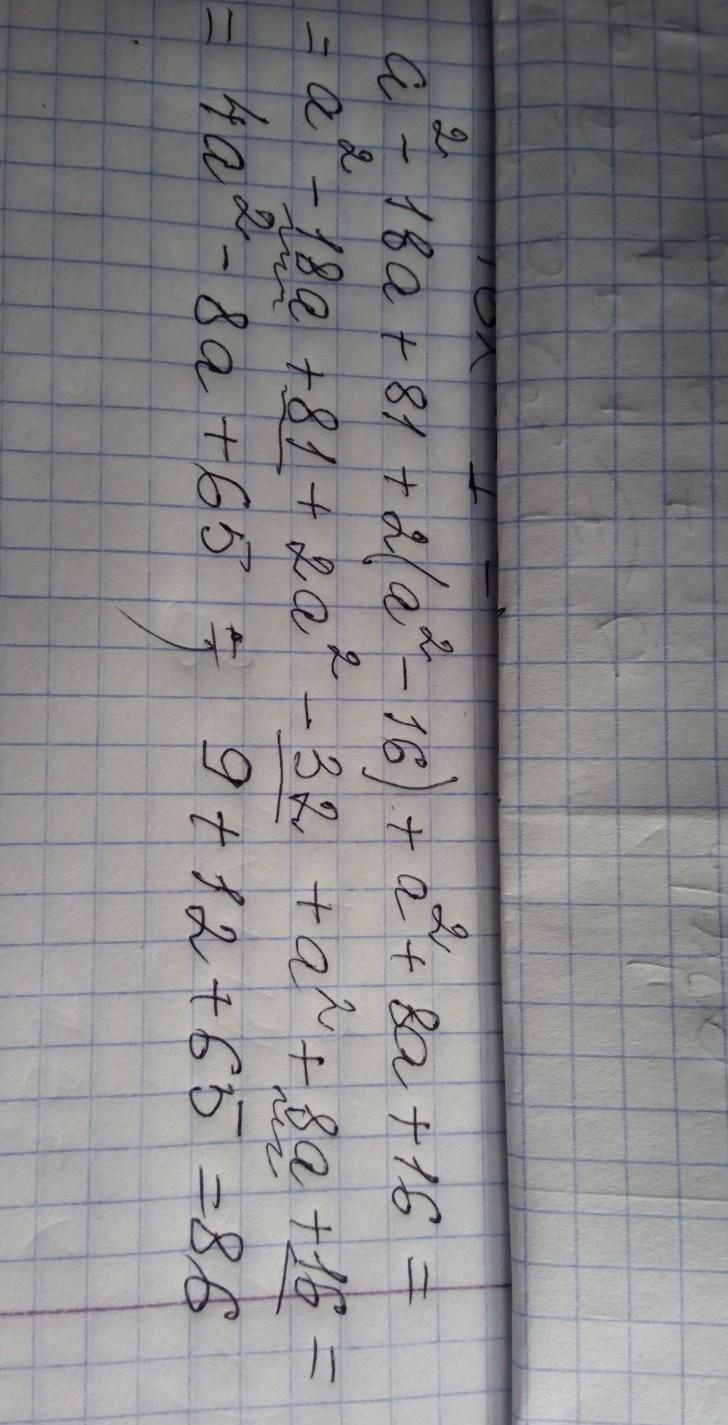 a² - 18a + 81 + 2(a² - 16) + a² + 8a + 16 =
= a² - 18a + 81 + 2a² - 32 + a² + 8a + 16 =
= 4a² - 8a + 65 = 9 + 12 + 65 = 86